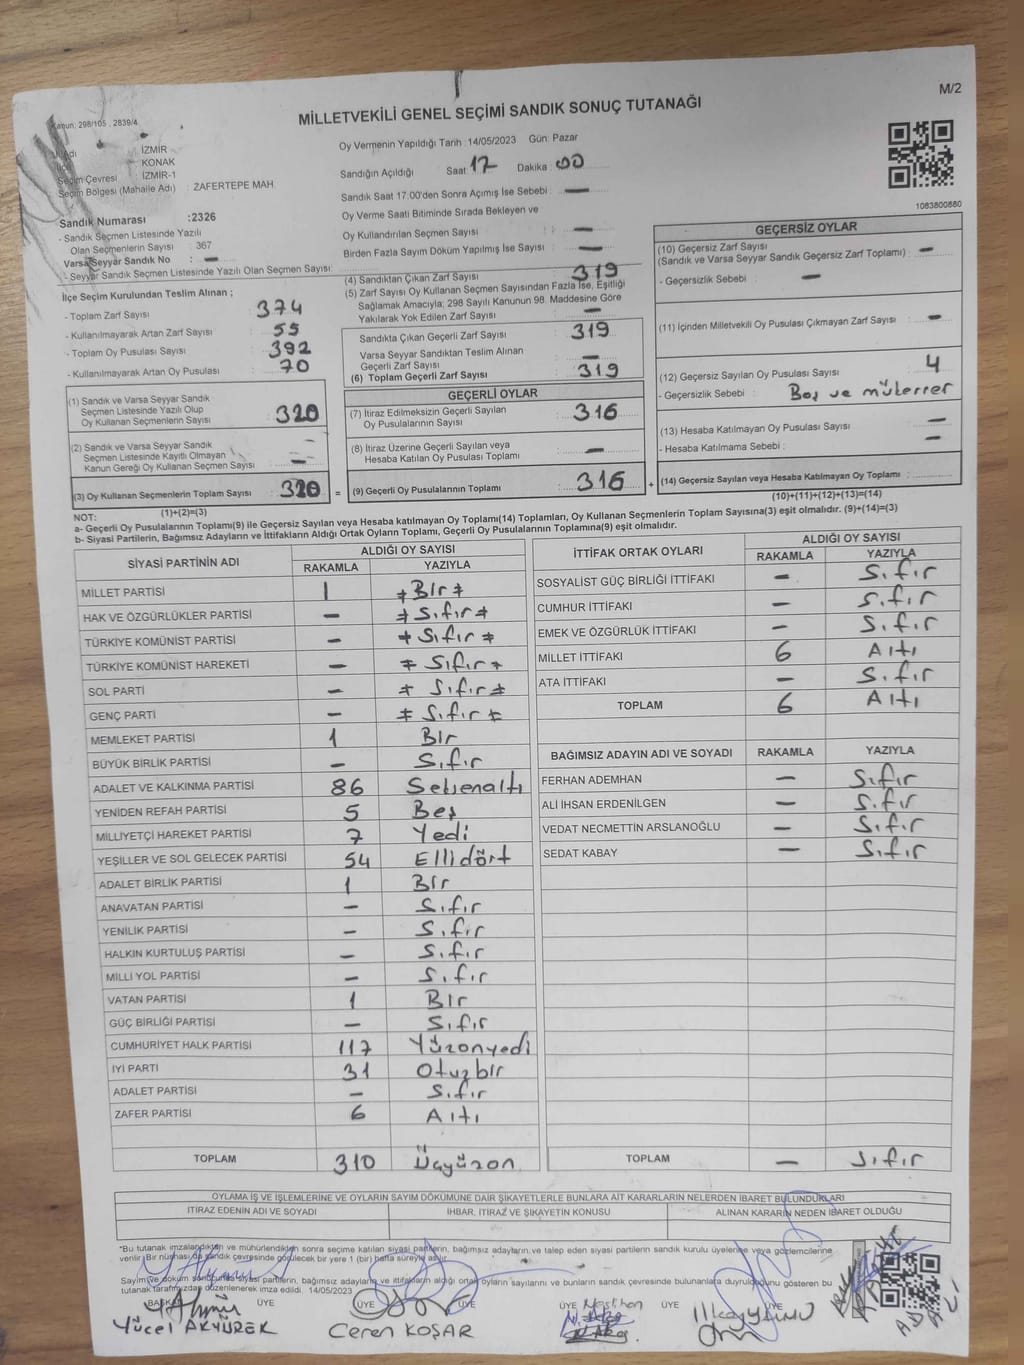 M/2
MİLLETVEKİLİ GENEL SEÇİMİ SANDIK SONUÇ TUTANAĞI
Kanun: 298/105 , 2839/4
İZMİR
KONAK
Seçim Çevresi : İZMİR-1
Seçim Bölgesi (Mahalle Adı) : ZAFERTEPE MAH.
Sandık Numarası :2326
- Sandık Seçmen Listesinde Yazılı
Olan Seçmenlerin Sayısı : 367
Varsa Seyyar Sandık No : —
- Seyyar Sandık Seçmen Listesinde Yazılı Olan Seçmen Sayısı:
Oy Vermenin Yapıldığı Tarih :14/05/2023 Gün: Pazar
Sandığın Açıldığı Saat 17 Dakika : 00
Sandık Saat 17.00'den Sonra Açımış İse Sebebi : —
Oy Verme Saati Bitiminde Sırada Bekleyen ve
Oy Kullandırılan Seçmen Sayısı : —
Birden Fazla Sayım Döküm Yapılmış İse Sayısı : —
1083800880
İlçe Seçim Kurulundan Teslim Alınan ;
- Toplam Zarf Sayısı : 374
- Kullanılmayarak Artan Zarf Sayısı : 55
- Toplam Oy Pusulası Sayısı : 392
- Kullanılmayarak Artan Oy Pusulası : 70
(1) Sandık ve Varsa Seyyar Sandık
Seçmen Listesinde Yazılı Olup
Oy Kullanan Seçmenlerin Sayısı : 320
(2) Sandık ve Varsa Seyyar Sandık
Seçmen Listesinde Kayıtlı Olmayan
Kanun Gereği Oy Kullanan Seçmen Sayısı : —
(3) Oy Kullanan Seçmenlerin Toplam Sayısı : 320 =
(1)+(2)=(3)
(4) Sandıktan Çıkan Zarf Sayısı : 319
(5) Zarf Sayısı Oy Kullanan Seçmen Sayısından Fazla İse, Eşitliği
Sağlamak Amacıyla; 298 Sayılı Kanunun 98. Maddesine Göre
Yakılarak Yok Edilen Zarf Sayısı : —
Sandıkta Çıkan Geçerli Zarf Sayısı : 319
Varsa Seyyar Sandıktan Teslim Alınan
Geçerli Zarf Sayısı : —
(6) Toplam Geçerli Zarf Sayısı : 319
GEÇERLİ OYLAR
(7) İtiraz Edilmeksizin Geçerli Sayılan
Oy Pusulalarının Sayısı : 316
(8) İtiraz Üzerine Geçerli Sayılan veya
Hesaba Katılan Oy Pusulası Toplamı : —
(9) Geçerli Oy Pusulalarının Toplamı : 316 +
GEÇERSİZ OYLAR
(10) Geçersiz Zarf Sayısı
(Sandık ve Varsa Seyyar Sandık Geçersiz Zarf Toplamı) : —
- Geçersizlik Sebebi : —
(11) İçinden Milletvekili Oy Pusulası Çıkmayan Zarf Sayısı : —
(12) Geçersiz Sayılan Oy Pusulası Sayısı : 4
- Geçersizlik Sebebi : Boş ve mükerrer
(13) Hesaba Katılmayan Oy Pusulası Sayısı : —
- Hesaba Katılmama Sebebi : —
(14) Geçersiz Sayılan veya Hesaba Katılmayan Oy Toplamı :
(10)+(11)+(12)+(13)=(14)
NOT:
a- Geçerli Oy Pusulalarının Toplamı(9) ile Geçersiz Sayılan veya Hesaba katılmayan Oy Toplamı(14) Toplamları, Oy Kullanan Seçmenlerin Toplam Sayısına(3) eşit olmalıdır. (9)+(14)=(3)
b- Siyasi Partilerin, Bağımsız Adayların ve İttifakların Aldığı Ortak Oyların Toplamı, Geçerli Oy Pusulalarının Toplamına(9) eşit olmalıdır.
SİYASİ PARTİNİN ADI ALDIĞI OY SAYISI
RAKAMLA YAZIYLA
MİLLET PARTİSİ 1 ≠Bir≠
HAK VE ÖZGÜRLÜKLER PARTİSİ — ≠Sıfır≠
TÜRKİYE KOMÜNİST PARTİSİ — ≠Sıfır≠
TÜRKİYE KOMÜNİST HAREKETİ — ≠Sıfır≠
SOL PARTİ — ≠Sıfır≠
GENÇ PARTİ — ≠Sıfır≠
MEMLEKET PARTİSİ 1 Bir
BÜYÜK BİRLİK PARTİSİ — Sıfır
ADALET VE KALKINMA PARTİSİ 86 Seksenaltı
YENİDEN REFAH PARTİSİ 5 Beş
MİLLİYETÇİ HAREKET PARTİSİ 7 Yedi
YEŞİLLER VE SOL GELECEK PARTİSİ 54 Ellidört
ADALET BİRLİK PARTİSİ 1 Bir
ANAVATAN PARTİSİ — Sıfır
YENİLİK PARTİSİ — Sıfır
HALKIN KURTULUŞ PARTİSİ — Sıfır
MİLLİ YOL PARTİSİ — Sıfır
VATAN PARTİSİ 1 Bir
GÜÇ BİRLİĞİ PARTİSİ — Sıfır
CUMHURİYET HALK PARTİSİ 117 Yüzonyedi
İYİ PARTİ 31 Otuzbir
ADALET PARTİSİ — Sıfır
ZAFER PARTİSİ 6 Altı
TOPLAM 310 Üçyüzon
İTTİFAK ORTAK OYLARI ALDIĞI OY SAYISI
RAKAMLA YAZIYLA
SOSYALİST GÜÇ BİRLİĞİ İTTİFAKI — Sıfır
CUMHUR İTTİFAKI — Sıfır
EMEK VE ÖZGÜRLÜK İTTİFAKI — Sıfır
MİLLET İTTİFAKI 6 Altı
ATA İTTİFAKI — Sıfır
TOPLAM 6 Altı
BAĞIMSIZ ADAYIN ADI VE SOYADI RAKAMLA YAZIYLA
FERHAN ADEMHAN — Sıfır
ALİ İHSAN ERDENİLGEN — Sıfır
VEDAT NECMETTİN ARSLANOĞLU — Sıfır
SEDAT KABAY — Sıfır
TOPLAM — Sıfır
OYLAMA İŞ VE İŞLEMLERİNE VE OYLARIN SAYIM DÖKÜMÜNE DAİR ŞİKAYETLERLE BUNLARA AİT KARARLARIN NELERDEN İBARET BULUNDUKLARI
İTİRAZ EDENİN ADI VE SOYADI İHBAR, İTİRAZ VE ŞİKAYETİN KONUSU ALINAN KARARIN NEDEN İBARET OLDUĞU
*Bu tutanak imzalandıktan ve mühürlendikten sonra seçime katılan siyasi partilerin, bağımsız adayların ve talep eden siyasi partilerin sandık kurulu üyelerine veya gözlemcilerine
verilir. Bir nüshası da sandık çevresinde görülecek bir yere 1 (bir) hafta süreyle asılır.
Sayım ve döküm sonucunda siyasi partilerin, bağımsız adayların ve ittifakların aldığı oyların sayılarını ve bunların sandık çevresinde bulunanlara duyrulduğunu gösteren bu
tutanak tarafımızdan düzenlenerek imza edildi. 14/05/2023
BAŞKAN ÜYE ÜYE ÜYE ÜYE ÜYE ÜYE
Yücel AKYÜREK Ceren KOŞAR Neslihan